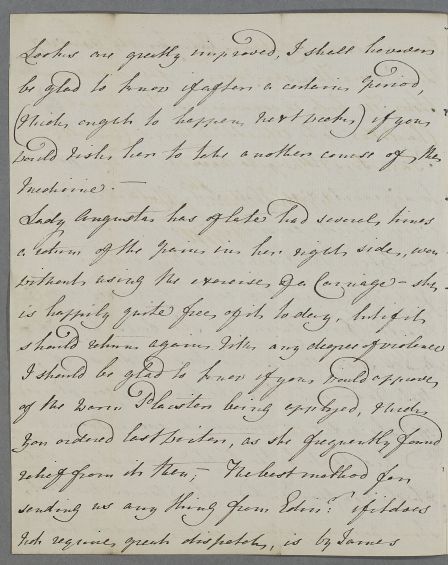 Looks are greatly improved, I shall however
be glad to know if after a certain Period,
(which ought to happen next week) if you
would wish her to take another course of the
Medicine. —
Lady Augusta has of late had several times
a return of the pain in her right side, even
without using the exercise of a Carriage - she
is happily quite free of it to day, but if it
should return again with any degree of violence
I should be glad to know if you would approve
of the warm Plaister being applyed, which
you ordered last winter, as she frequently found
relief from it then; — The best method for
sending us any thing from Edinr. if it does
not require great dispatch, is by James